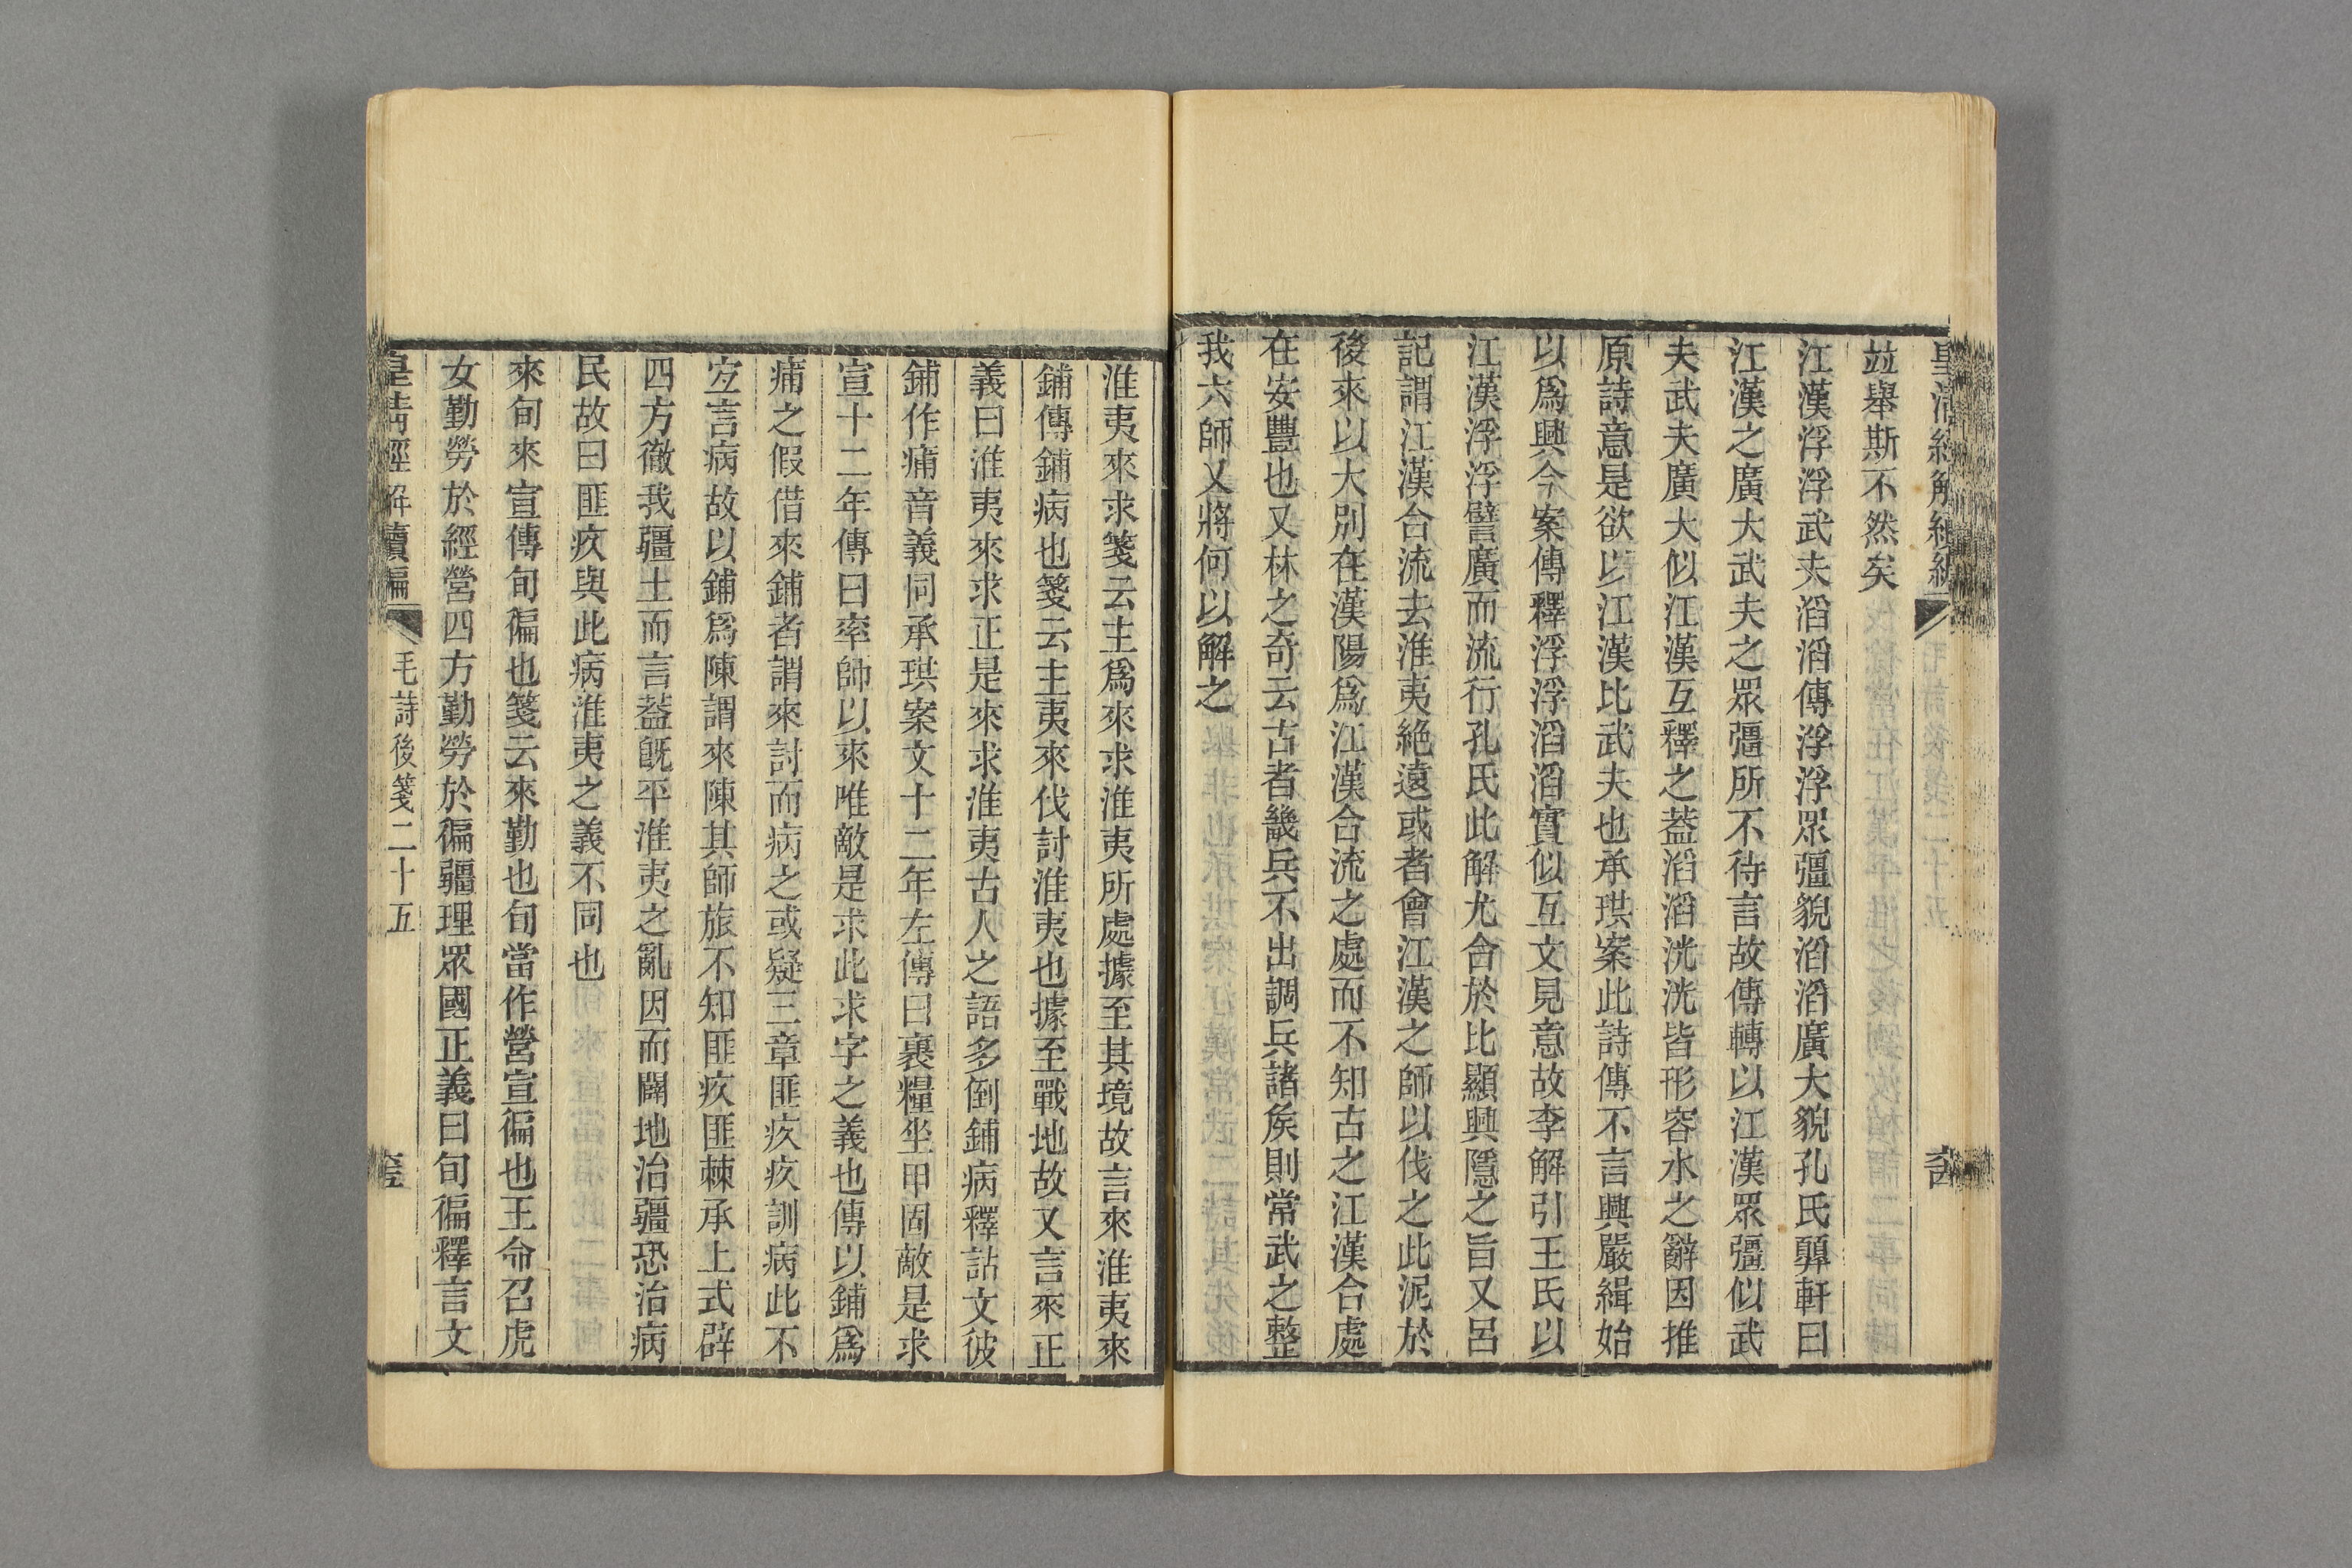 皇清經解續編
竝舉斯不然矣
江漢浮浮武夫滔滔傳浮浮眾彊貌滔滔廣大貌孔氏顨軒曰
江漢之廣大武夫之眾彊所不待言故傳轉以江漢眾彊似武
夫武夫廣大似江漢互釋之葢滔滔洸洸皆形容水之辭因推
原詩意是欲以江漢比武夫也承珙案此詩傳不言興嚴緝始
以爲興今案傳釋浮浮滔滔實似互文見意故李解引王氏以
江漢浮浮譬廣而流行孔氏此解尤合於比顯興隱之旨又呂
記謂江漢合流去淮夷絶遠或者會江漢之師以伐之此泥於
後來以大別在漢陽爲江漢合流之處而不知古之江漢合處
在安豐也又林之奇云古者畿兵不出調兵諸矦則常武之整
我六師又將何以解之
淮夷來求箋云主爲來求淮夷所處據至其境故言來淮夷來
鋪傳鋪病也箋云主夷來伐討淮夷也據至戰地故又言來正
義曰淮夷來求正是來求淮夷古人之語多倒鋪病釋詁文彼
鋪作痡音義同承珙案文十二年左傳曰裹糧坐甲固敵是求
宣十二年傳曰率師以來唯敵是求此求字之義也傳以鋪爲
痡之假借來鋪者謂來討而病之或疑三章匪疚疚訓病此不
宐言病故以鋪爲陳謂來陳其師旅不知匪疚匪棘承上式辟
四方徹我疆土而言葢旣平淮夷之亂因而闢地治疆恐治病
民故曰匪疚與此病淮夷之義不同也
來旬來宣傳旬徧也箋云來勤也旬當作營宣徧也王命召虎
女勤勞於經營四方勤勞於徧疆理眾國正義曰旬徧釋言文
皇清經解續編 毛詩後箋二十五